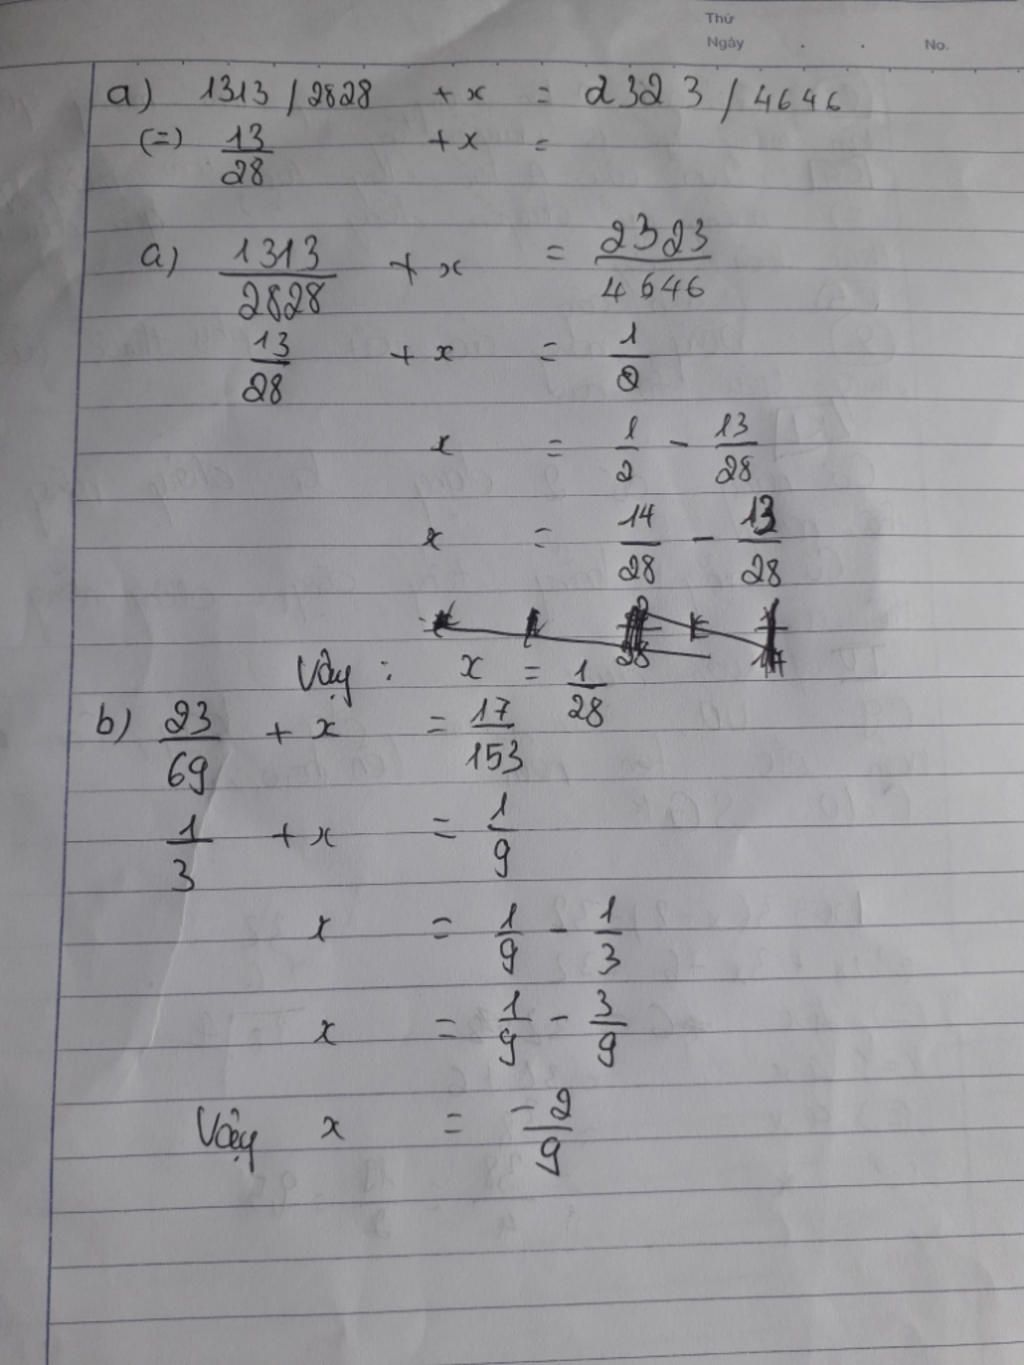 Thứ
Ngày . . No.
a) 1313/2828 + x = 2323/4646
(=) 13/28 + x =
a) 1313/2828 + x = 2323/4646
13/28 + x = 1/2
x = 1/2 - 13/28
x = 14/28 - 13/28
Vậy : x = 1/28
b) 23/69 + x = 17/153
1/3 + x = 1/9
x = 1/9 - 1/3
x = 1/9 - 3/9
Vậy x = -2/9